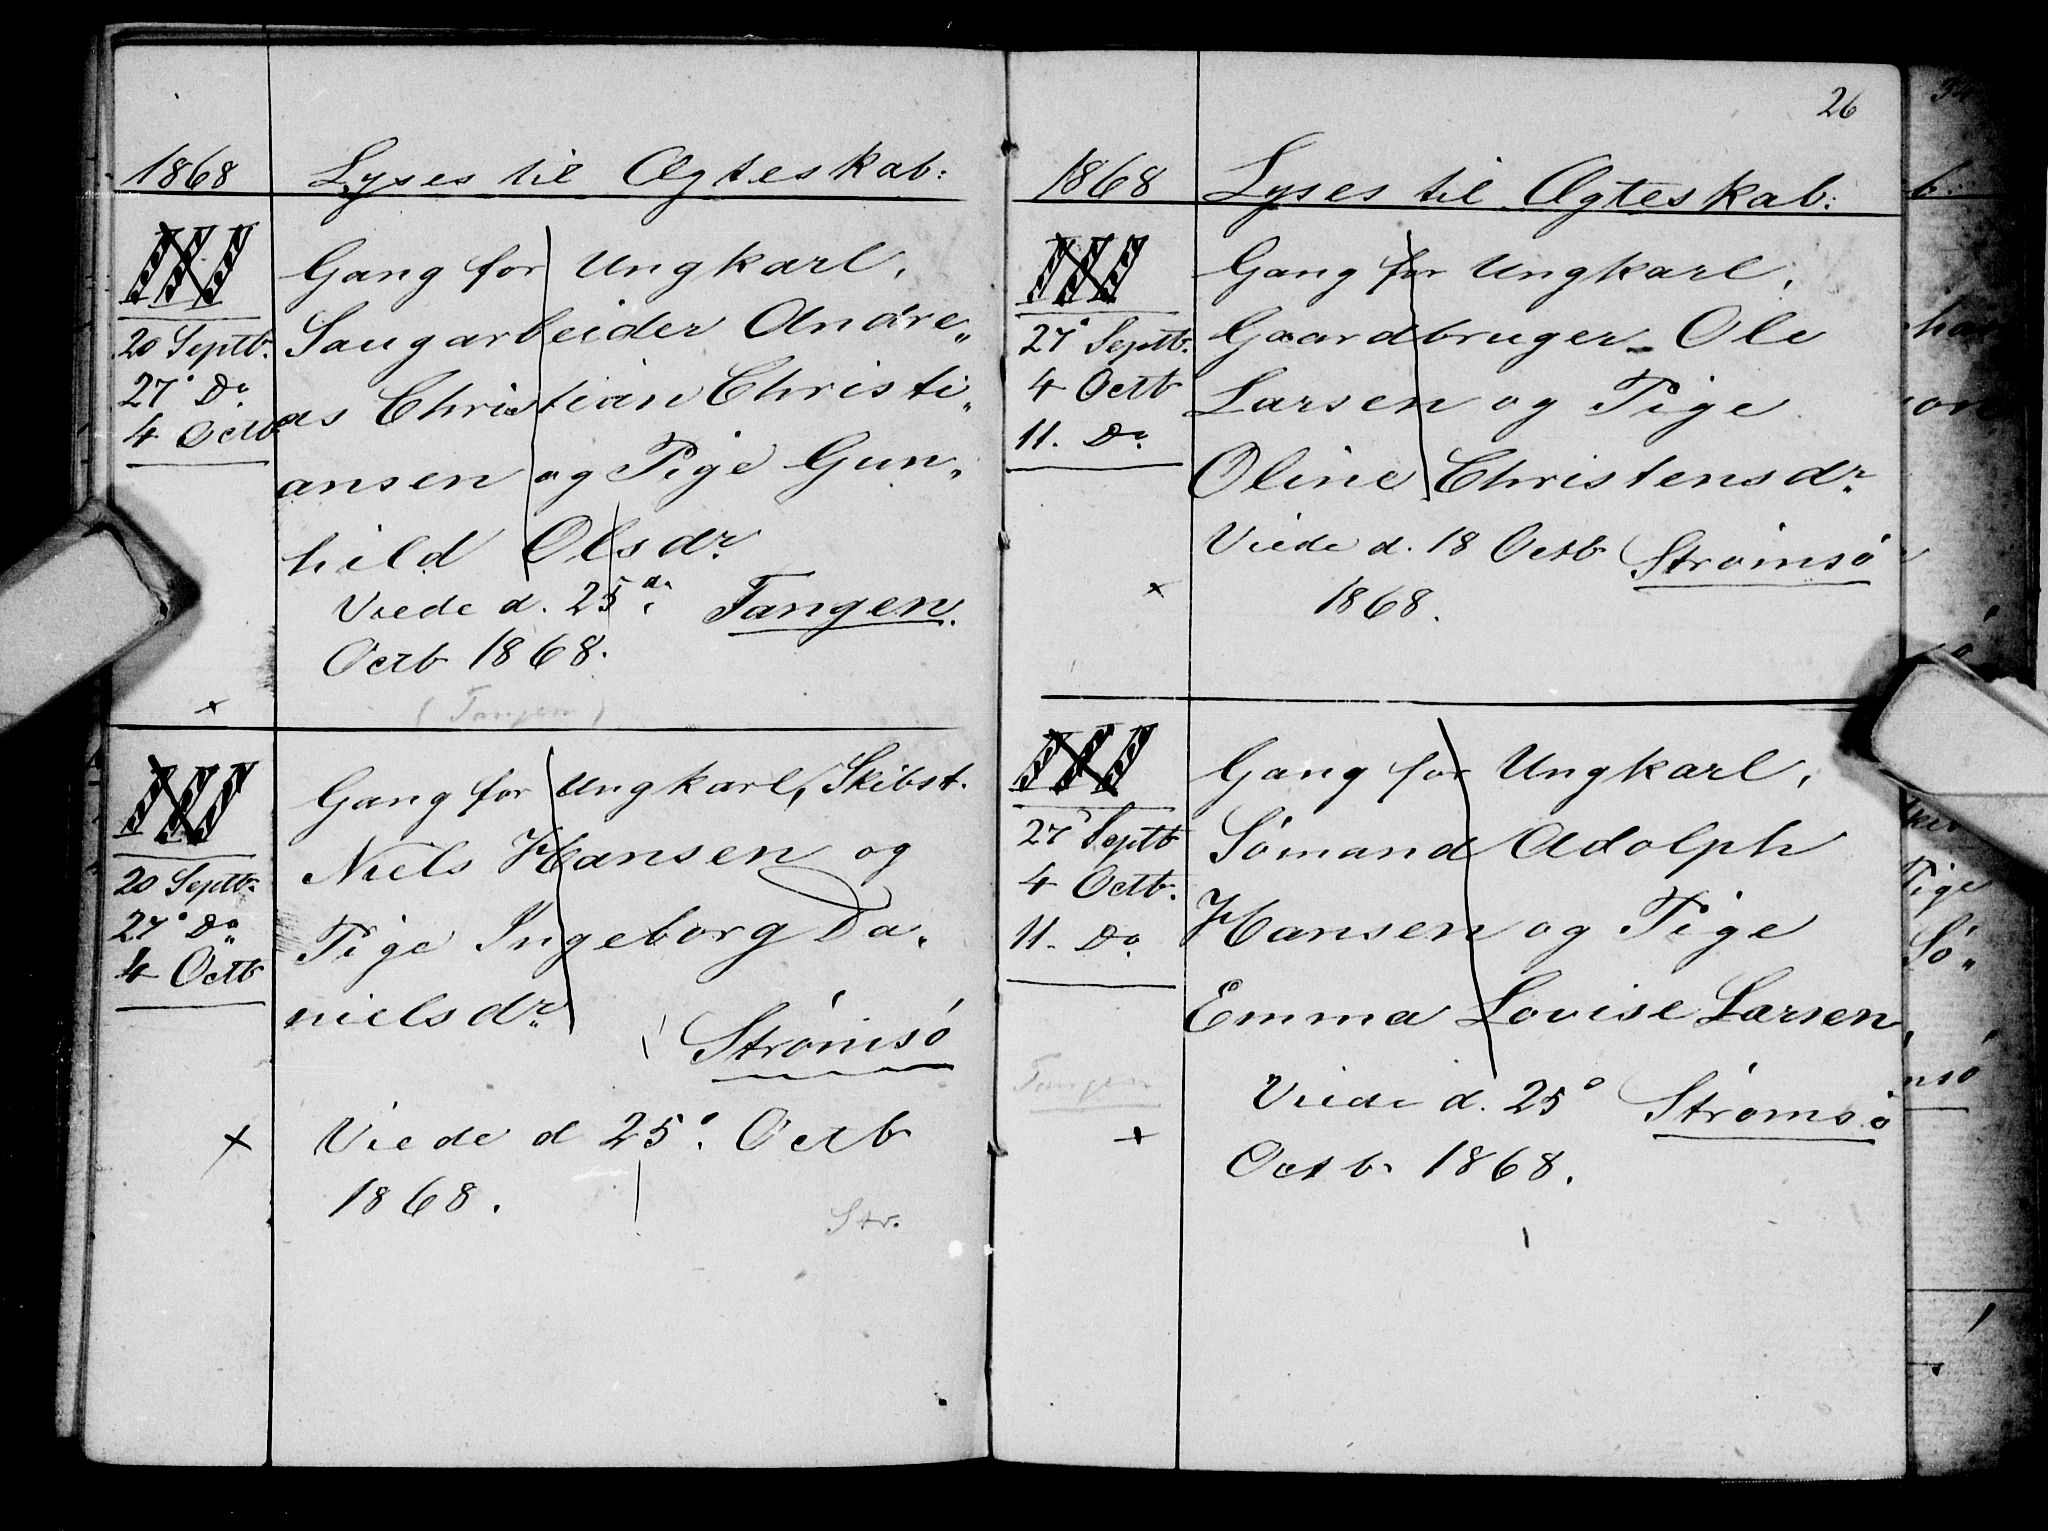 1868
Lyses til Ægteskab:
III
20 Septb.
27° Do
4 Octb
Gang for Ungkarl,
Saugarbeider Andre„
as Christian Christi„
ansen og Pige Gun„
hild Olsdr.
Viede d. 25 d.
Tangen.
Octb 1868.
(Tangen)
III
20 Septb.
27° Do
4 Octb
Gang for Ungkarl, Skibst.
Niels Hansen og
Pige Ingeborg Da„
nielsdr.
Strømsö
Viede d 25°. Octb
1868.
Str.
26
1868
Lyses til Ægteskab:
III
27° Septb.
4 Octb
11. Do
Gang for Ungkarl,
Gaardbruger Ole
Larsen og Pige
Oline Christensdr.
Viede d. 18 Octb Strømsö
1868.
III
27 Septb
4 Octb.
11. Do
Tangen
Gang for Ungkarl,
Sömand Adolph
Hansen og Pige
Emma Lovise Larsen,
Viede d. 25° Strömsö
Octb. 1868.